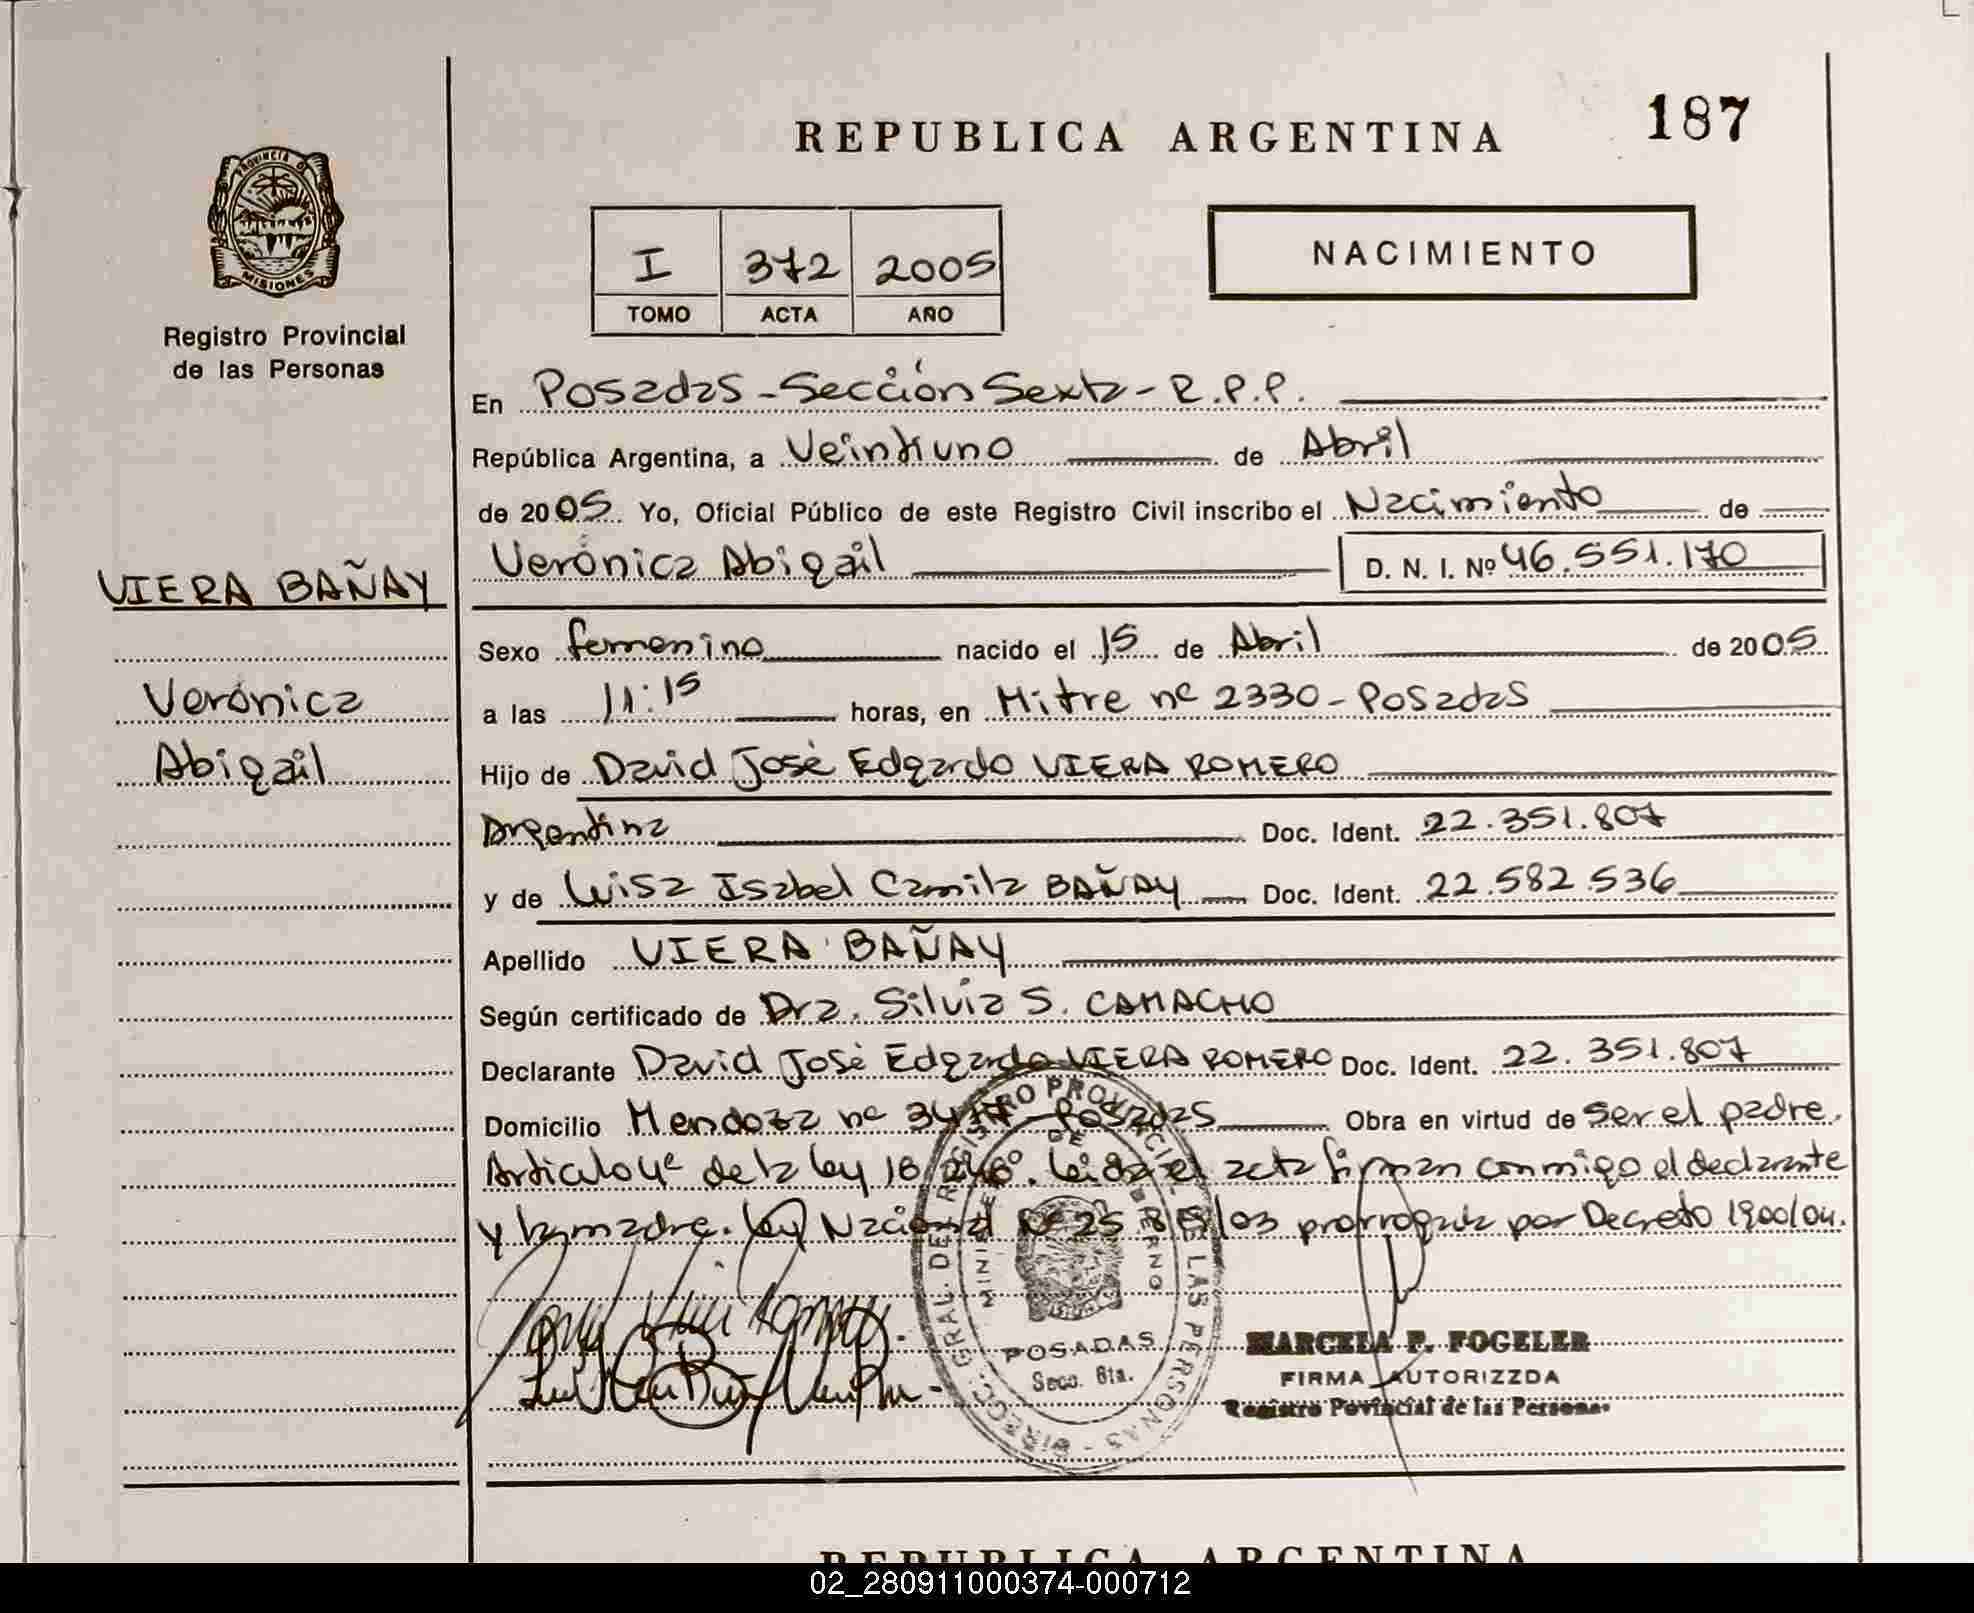 REPUBLICA ARGENTINA
187
PROVINCIA D
MISIONES
Registro Provincial
de las Personas
I 372 2005
TOMO ACTA AÑO
NACIMIENTO
En Posadas - Sección Sexta - R.P.P.
República Argentina, a Veintiuno de Abril
de 2005 Yo, Oficial Público de este Registro Civil inscribo el Nacimiento de
Verónica Abigail D. N. I. Nº 46.551.170
VIERA BAÑAY
Sexo femenino nacido el 15 de Abril de 2005
Verónica
a las 11:15 horas, en Mitre nº 2330 - Posadas
Abigail
Hijo de David José Edgardo VIERA ROMERO
Argentina Doc. Ident. 22.351.807
y de Luisa Isabel Camila BAÑAY Doc. Ident. 22.582.536
Apellido VIERA BAÑAY
Según certificado de Dra. Silvia S. CAMACHO
Declarante David José Edgardo VIERA ROMERO Doc. Ident. 22.351.807
Domicilio Mendoza nº Posadas Obra en virtud de ser el padre.
Articulo 4º de la ley 18.248. Leida el acta firman conmigo el declarante
y la madre. Ley Nacional Nº 25 /03 prorrogada por Decreto 1900/04.
DIRECC. GRAL. DEL REGISTRO PROVINCIAL DE LAS PERSONAS
MINISTERIO DE GOBIERNO
POSADAS
Secc. 6ta.
MARCELA F. FOGELER
FIRMA AUTORIZZDA
Registro Povincial de las Personas
REPUBLICA ARGENTINA
02_280911000374-000712